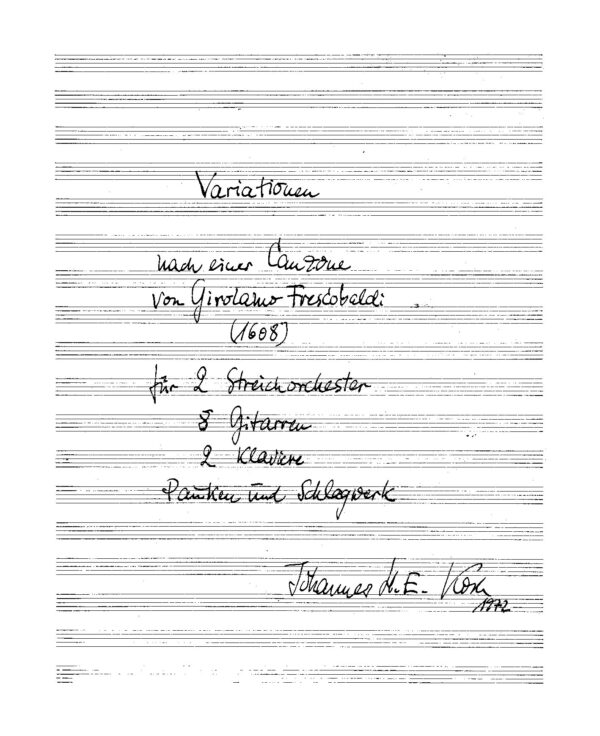 Variationen
nach einer Canzone
von Girolamo Frescobaldi
(1608)
für 2 Streichorchester
3 Gitarren
2 Klaviere
Pauken und Schlagwerk
Johannes H. E. Koch
1972